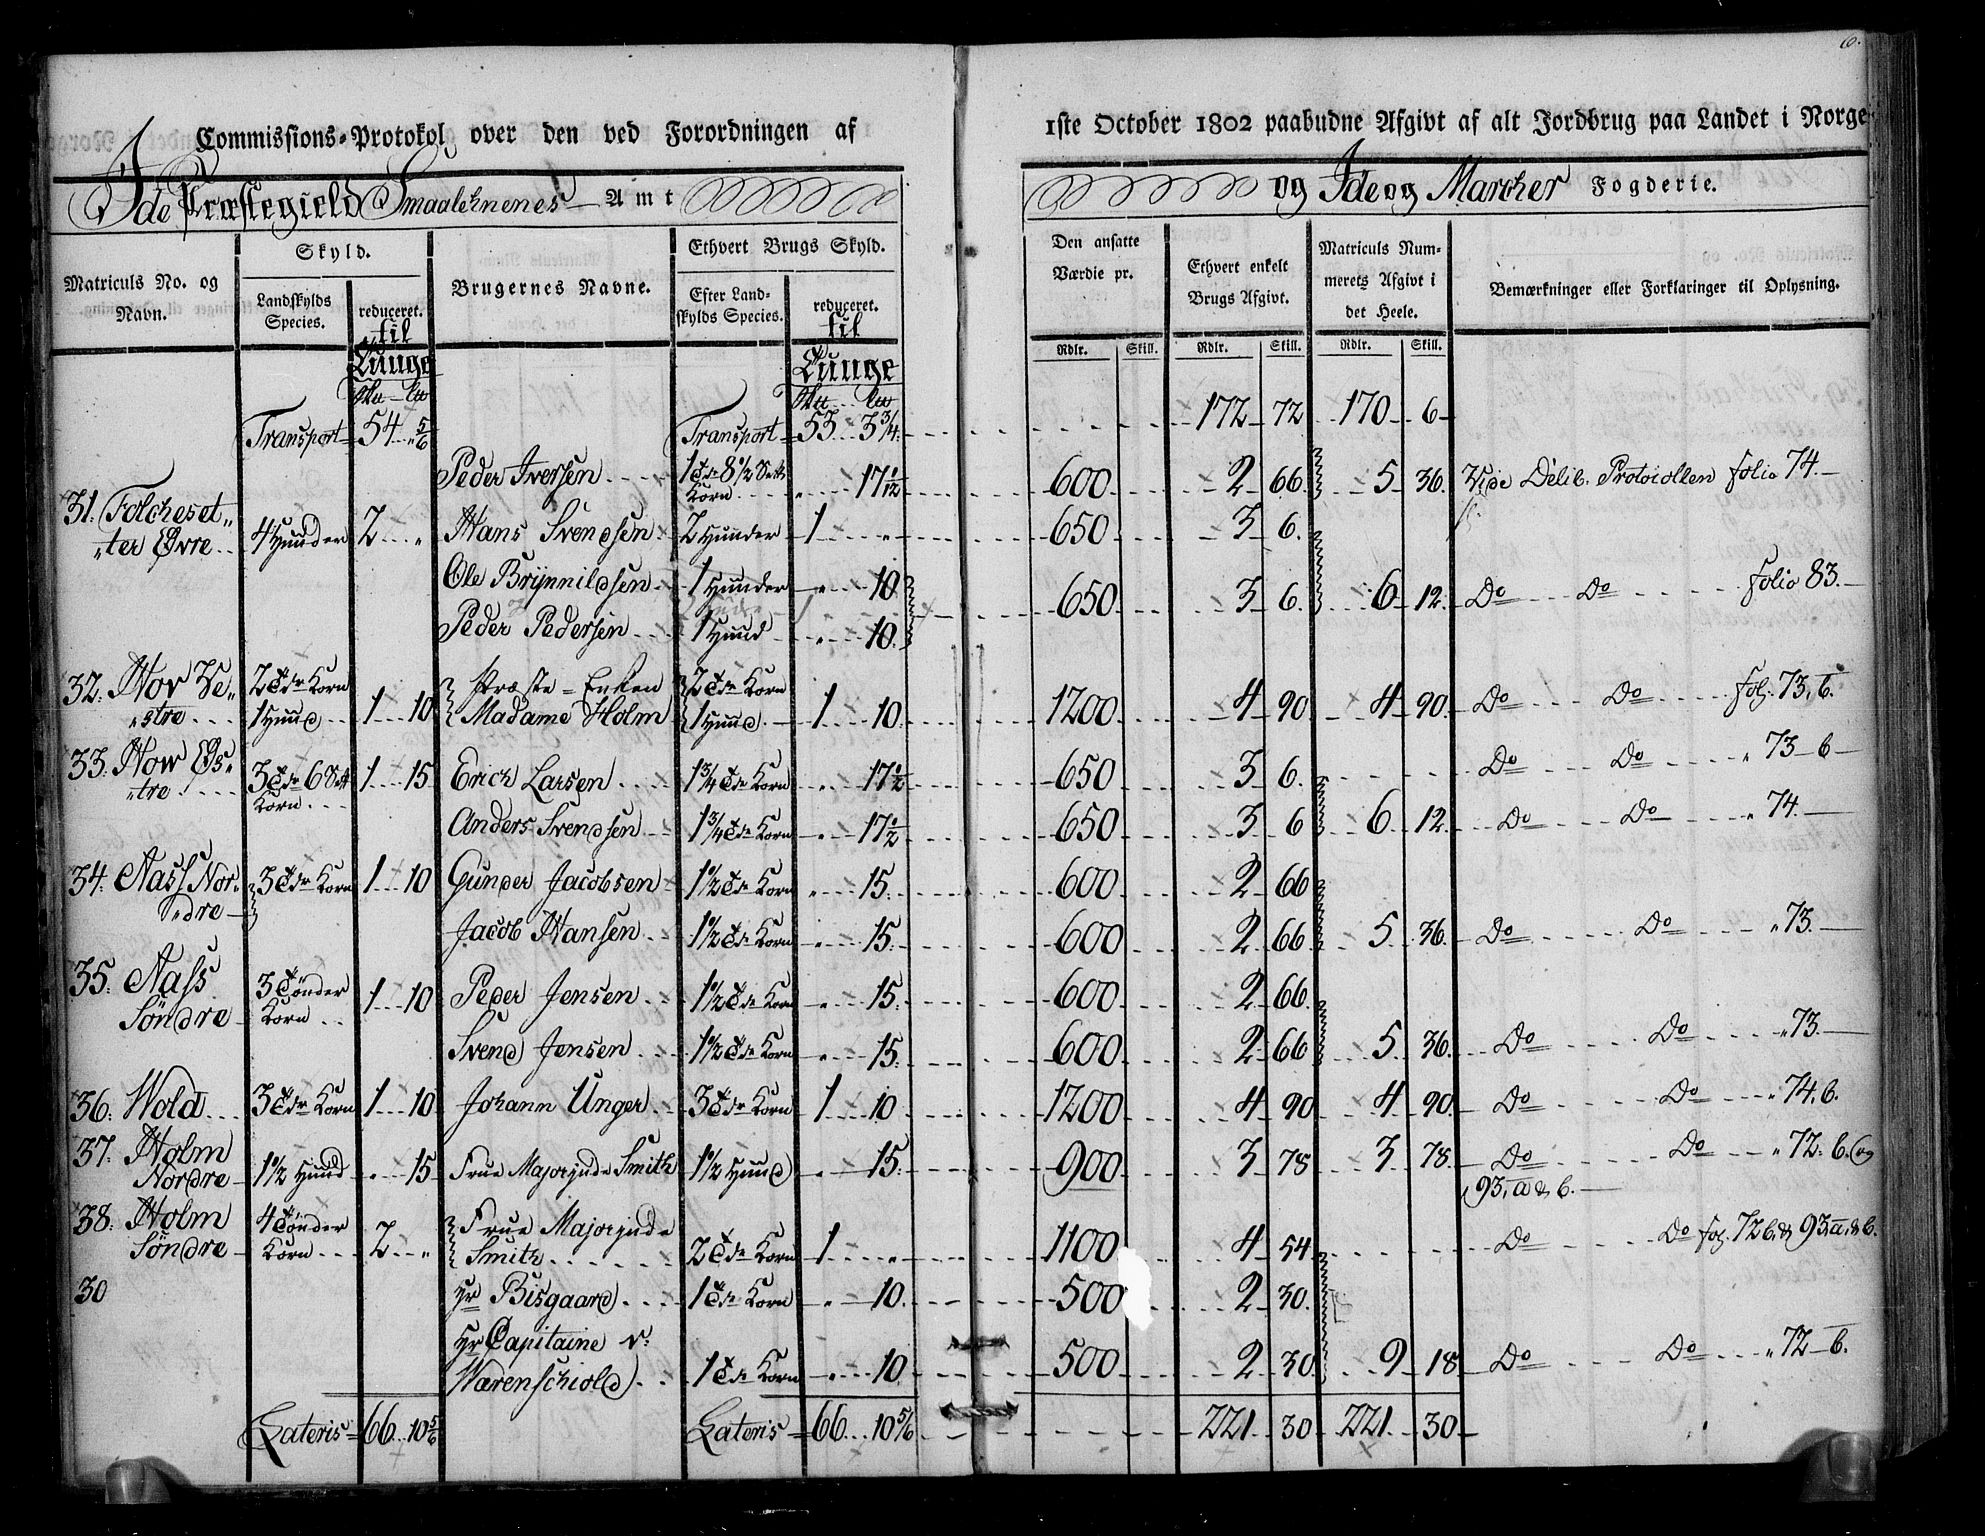 6.
Commissions-Protokol over den ved Forordningen af 1ste October 1802 paabudne Afgivt af alt Jordbrug paa Landet i Norge
Ide Præstegield Smaalehnenes Amt og Ide og Marcher Fogderie.
Matriculs No. og Navn.
Skyld.
Landskylds Species.
reduceret. til Tunge
Brugernes Navne.
Ethvert Brugs Skyld.
Efter Landskylds Species.
reduceret. til Tunge
Den ansatte Værdie pr.
Ethvert enkelt Brugs Afgivt.
Matriculs Nummerets Afgivt i det Heele.
Bemærkninger eller Forklaringer til Oplysning.
Rdlr. Skill. Rdlr. Skill. Rdlr. Skill.
Transport 54 „ 5/6 Transport 53 3 3/4 172 72 170 6
Peder Iversen 1 Tde 8 1/2 Sett Korn „ 17 1/12 600 2 66 5 36 Vide Delib. Protocollen folio 74.
31. Folcheset„ „ter Øvre 4 Hunder 2 „ Hans Svendsen 2 Hunder 1 „ 650 3 6
Ole Brynnildsen 1 Hunder „ 10 650 3 6 6 12 Do Do folio 83.
Peder Pedersen 1 Hund „ 10
32. Nor Ve„ „stre 2 Tdr Korn 1 Hund 1 10 Præste-Enken Madame Holm 2 Tdr Korn 1 Hund 1 10 1200 4 90 4 90 Do Do fol. 73, b.
33. Now Øs„ „tre 3 Tdr 6 Sett Korn 1 15 Erich Larsen 1 3/4 Tde Korn „ 17 1/2 650 3 6 Do Do „ 73 b
Anders Svendsen 1 3/4 Tde Korn „ 17 1/2 650 3 6 6 12 Do Do „ 74.
34. Nass Nor„ „dre 3 Tdr Korn 1 10 Gunder Jacobsen 1 1/2 Tde Korn „ 15 600 2 66
Jacob Hansen 1 1/2 Tde Korn „ 15 600 2 66 5 36 Do Do „ 73.
35. Nass Søndre 3 Tønder Korn 1 10 Peder Jensen 1 1/2 Tde Korn „ 15 600 2 66
Svend Jensen 1 1/2 Tde Korn „ 15 600 2 66 5 36 Do Do „ 73.
36. Wold 3 Tdr Korn 1 10 Johann Unger 3 Tdr Korn 1 10 1200 4 90 4 90 Do Do „ 74, b.
37. Holm Nordre 1 1/2 Hund „ 15 Frue Majorinde Smith 1 1/2 Hund „ 15 900 3 78 3 78 Do Do „ 72. b. og
93, a & b.
38. Holm Søndre 4 Tønder Korn 2 „ Frue Majorinde Smith 2 Tdr Korn 1 „ 1100 4 54 Do Do fol. 72 b. & 93, a. & b.
30 Hr Bisgaard 1 Tde Korn „ 10 500 2 30
Hr Capitaine v: Wærenschiold 1 Tde Korn „ 10 500 2 30 9 18 Do Do „ 72 b.
Lateris 66 10 5/6 Lateris 66 10 5/6 221 30 221 30